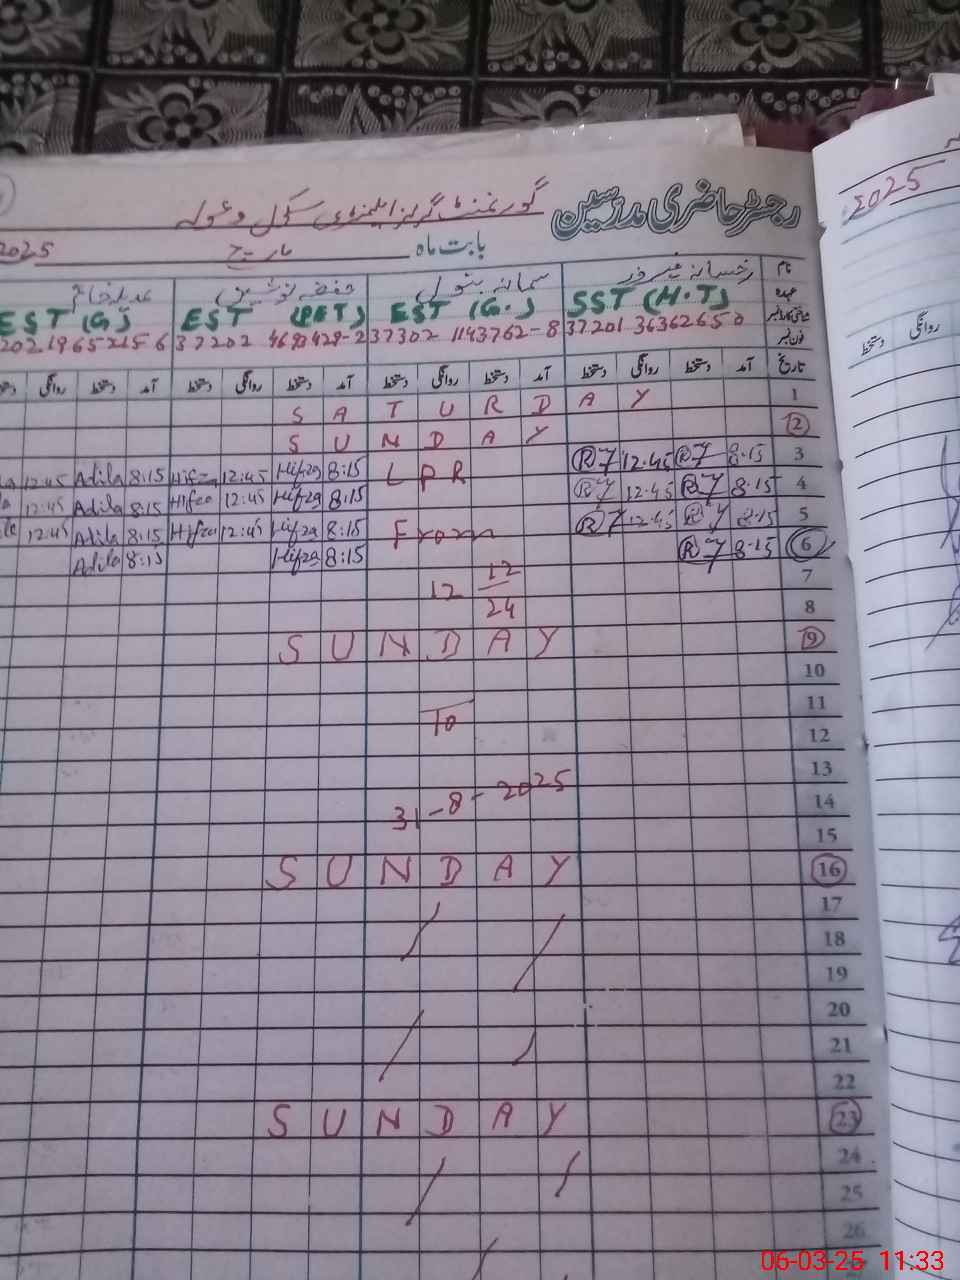 رجسٹر حاضری مدرسین گورنمنٹ گرلز ایلیمنٹری سکول
2025
بابت ماہ مارچ 2025
نام رخسانہ سمانہ بتول حفضہ نوشین
عہدہ SST (H.T) EST (G.) EST (PET) EST (G)
37201 3636265 0 37302 1143762-8 37202 -2 202 1965215 6
فون نمبر
تاریخ آمد دستخط روانگی دستخط آمد روانگی دستخط آمد دستخط روانگی دستخط آمد دستخط روانگی
روانگی دستخط
1 S A T U R D A Y
2 S U N D A Y
3 8:15 12:45 L P R 8:15 Hifza 12:45 Hifza 8:15 Adila 12:45
4 8:15 12:45 8:15 Hifza 12:45 Hifza 8:15 Adila 12:45
5 8:15 12:45 From 8:15 Hifza 12:45 Hifza 8:15 Adila 12:45
6 8:15 8:15 Hifza 8:15 Adila
7 12 12
8 24
9 S U N D A Y
10
11 To
12
13
14 31-8-2025
15
16 S U N D A Y
17
18
19
20
21
22
23 S U N D A Y
24
25
26
06-03-25 11:33